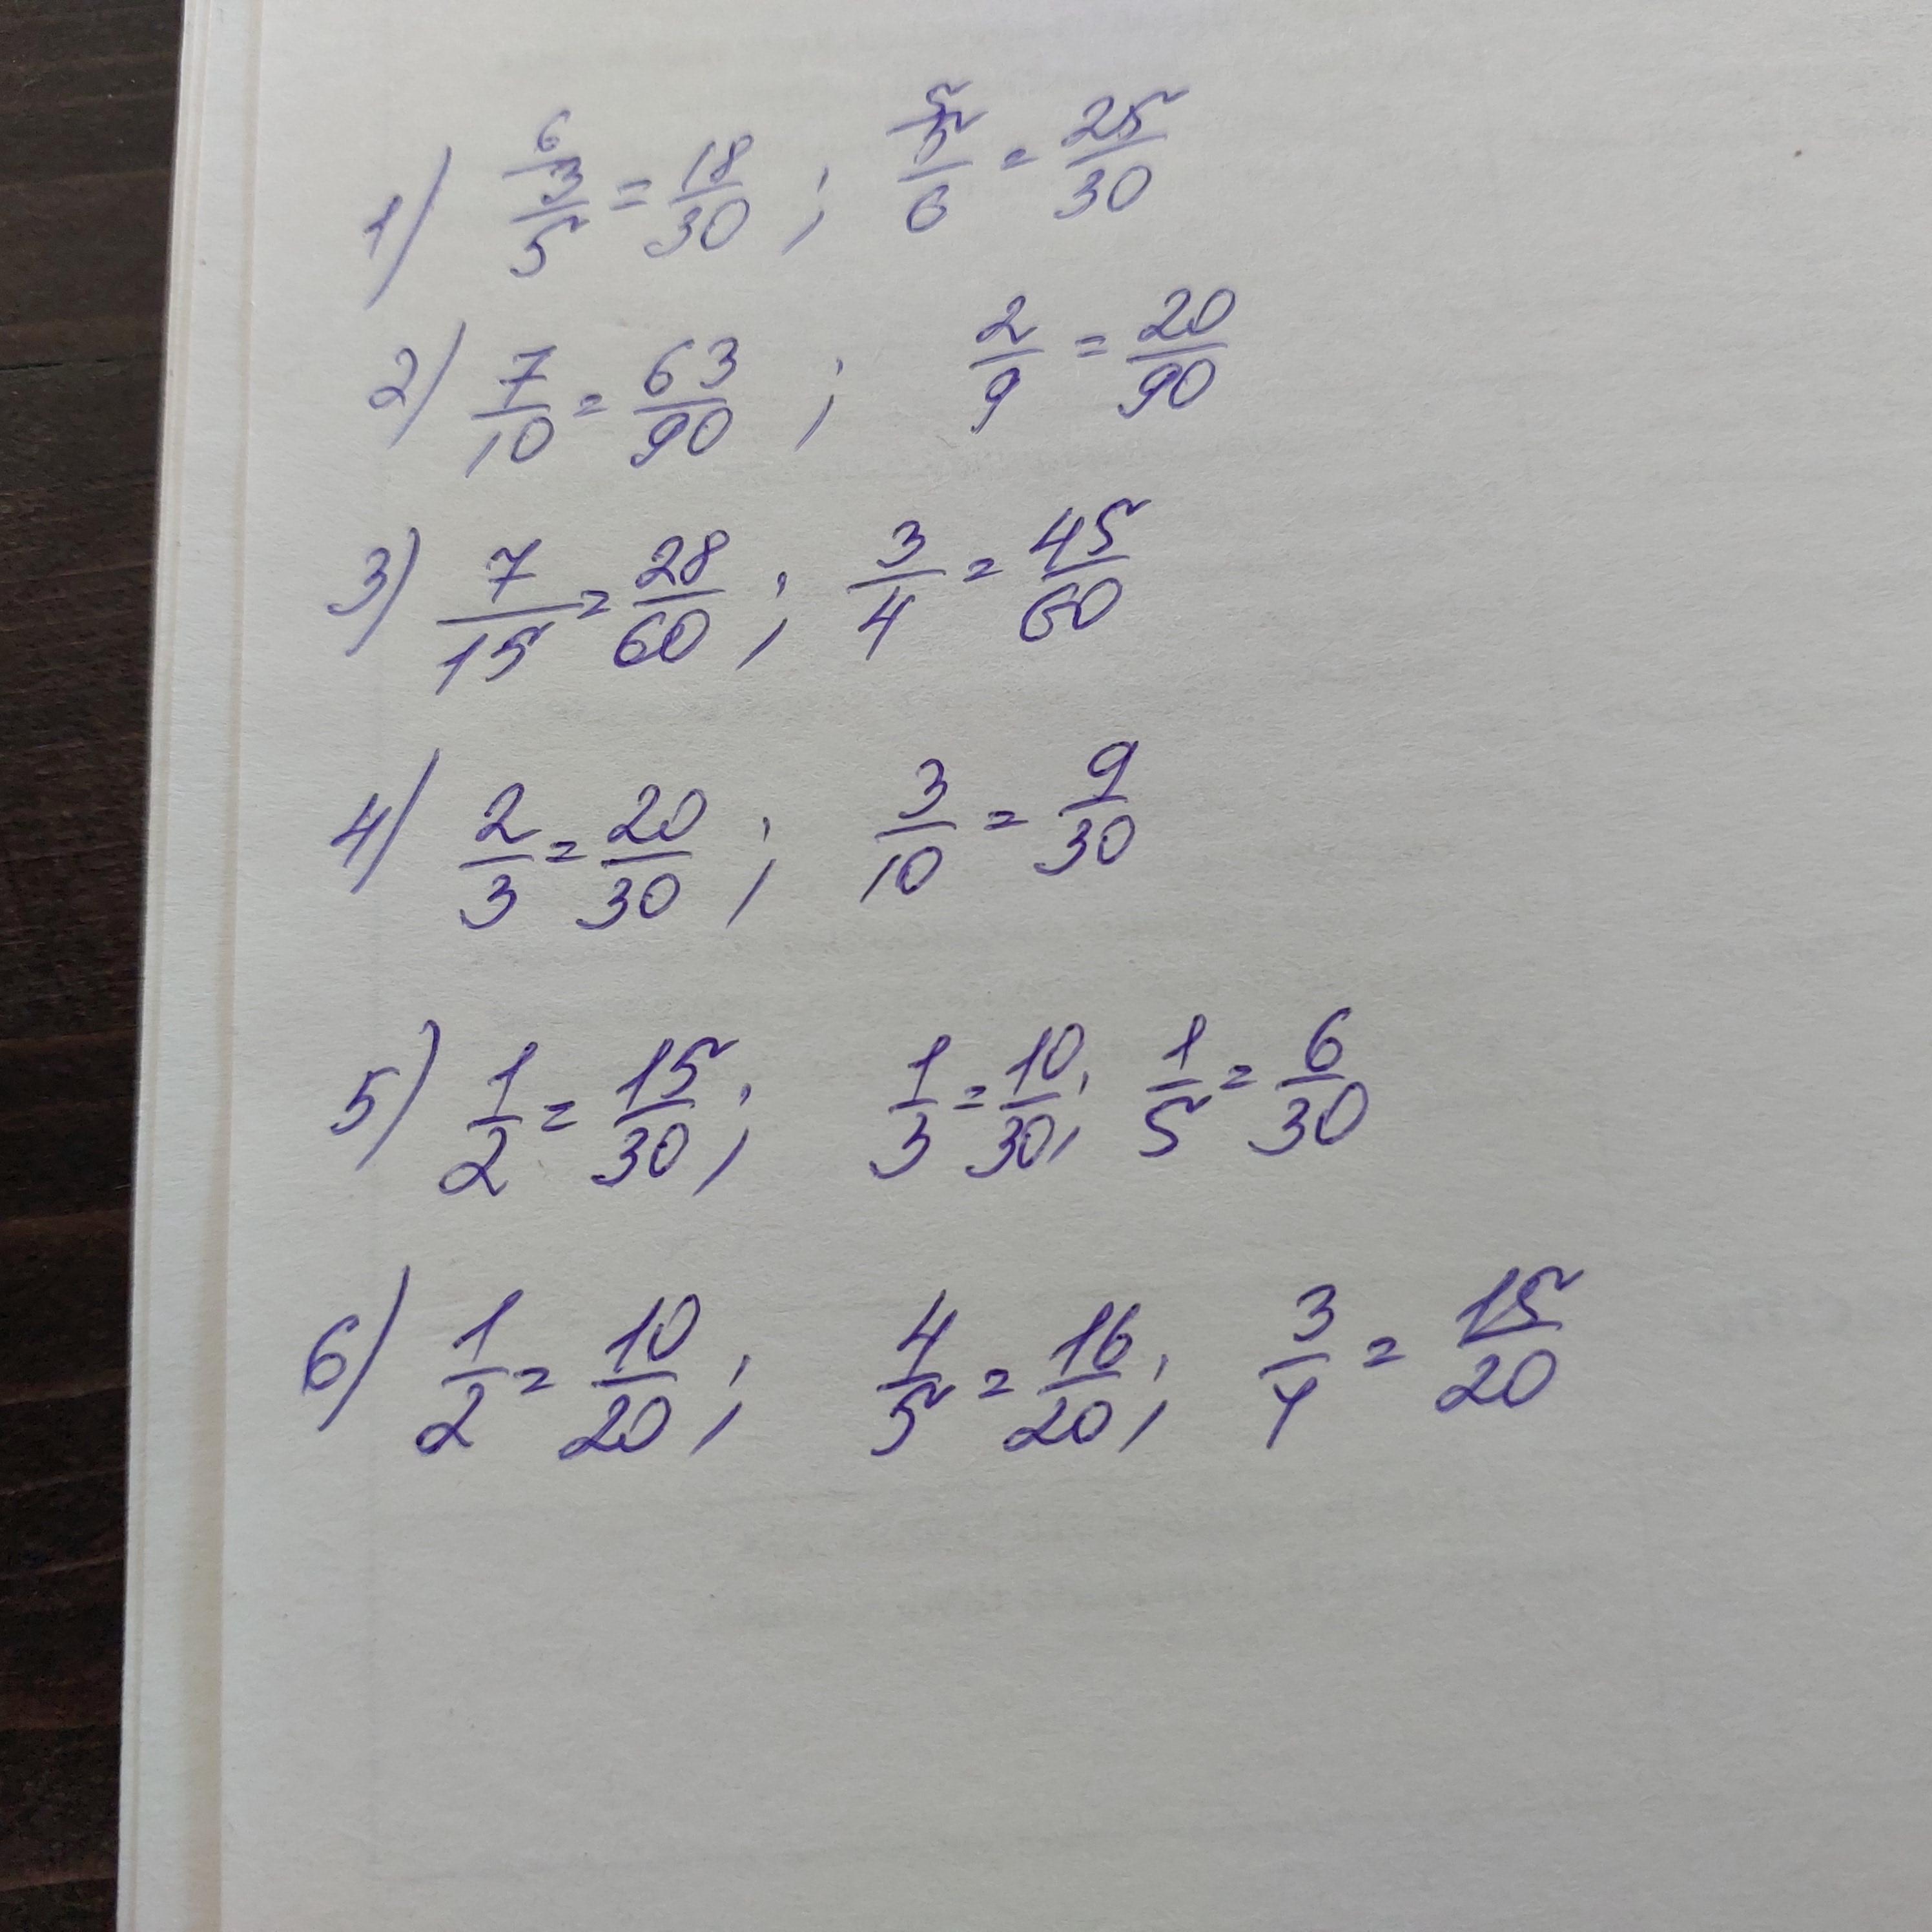 1) ⁶⁄ 3/5 = 18/30 ; ⁵⁄ 5/6 = 25/30
2) 7/10 = 63/90 ; 2/9 = 20/90
3) 7/15 = 28/60 ; 3/4 = 45/60
4) 2/3 = 20/30 ; 3/10 = 9/30
5) 1/2 = 15/30 ; 1/3 = 10/30 ; 1/5 = 6/30
6) 1/2 = 10/20 ; 4/5 = 16/20 ; 3/4 = 15/20